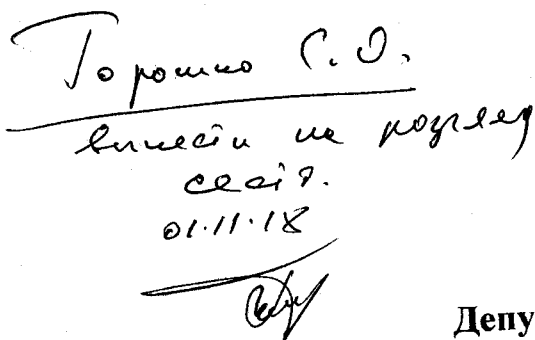 Горошко С.О.
винести на розгляд
сесії.
01.11.18
Депу